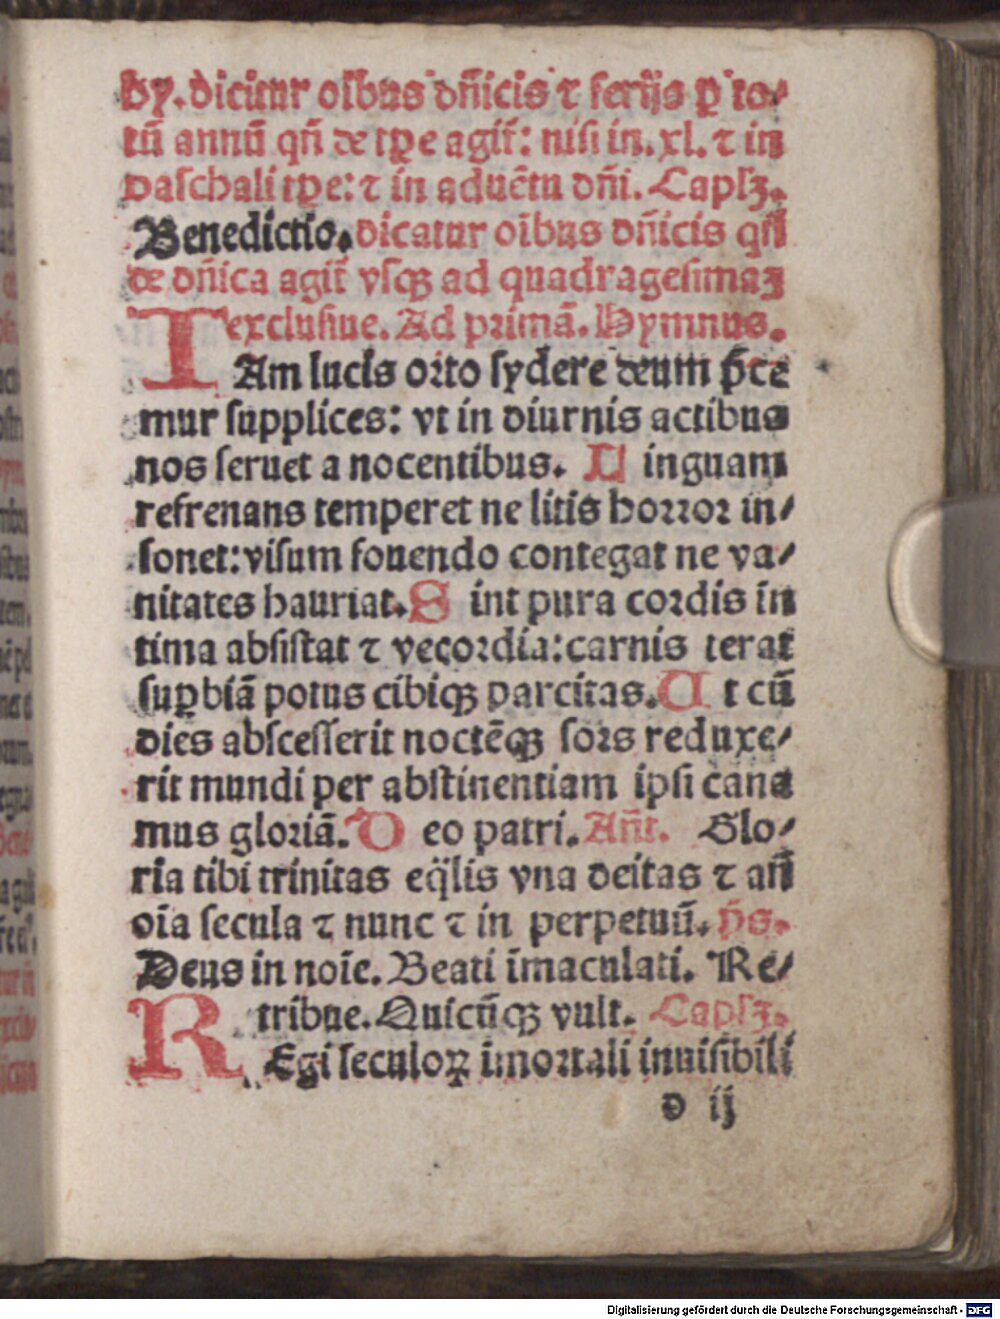 hy. dicitur oībus dn̄icis ⁊ ferijs ꝑ to⸗
tū annū qn̄ de tꝑe agit̄: nisi in. xl. ⁊ in
paschali tꝑe: ⁊ in aduētu dn̄i. Capłꝫ.
Benedictio. dicatur oībus dn̄icis qn̄
de dn̄ica agit̄ vsqꝫ ad quadragesimaꝫ
exclusiue. Ad primā. Hymnus.
IAm lucis orto sydere deum p̄ce
mur supplices: vt in diurnis actibus
nos seruet a nocentibus. L inguam
refrenans temperet ne litis horror in⸗
sonet: visum fouendo contegat ne va⸗
nitates hauriat. S int pura cordis in
tima absistat ⁊ vecordia: carnis terat
suꝑbiā potus cibiqꝫ parcitas. U t cū
dies abscesserit noctēqꝫ sors reduxe⸗
rit mundi per abstinentiam ipsi cana
mus gloriā. D eo patri. An̄t. Glo⸗
ria tibi trinitas eq̄lis vna deitas ⁊ an̄
oīa secula ⁊ nunc ⁊ in perpetuū. p̄s.
Deus in noīe. Beati īmaculati. Re⸗
tribue. Quicūqꝫ vult. Capłꝫ.
REgi seculoꝝ īmortali inuisibili
d ij
Digitalisierung gefördert durch die Deutsche Forschungsgemeinschaft - DFG